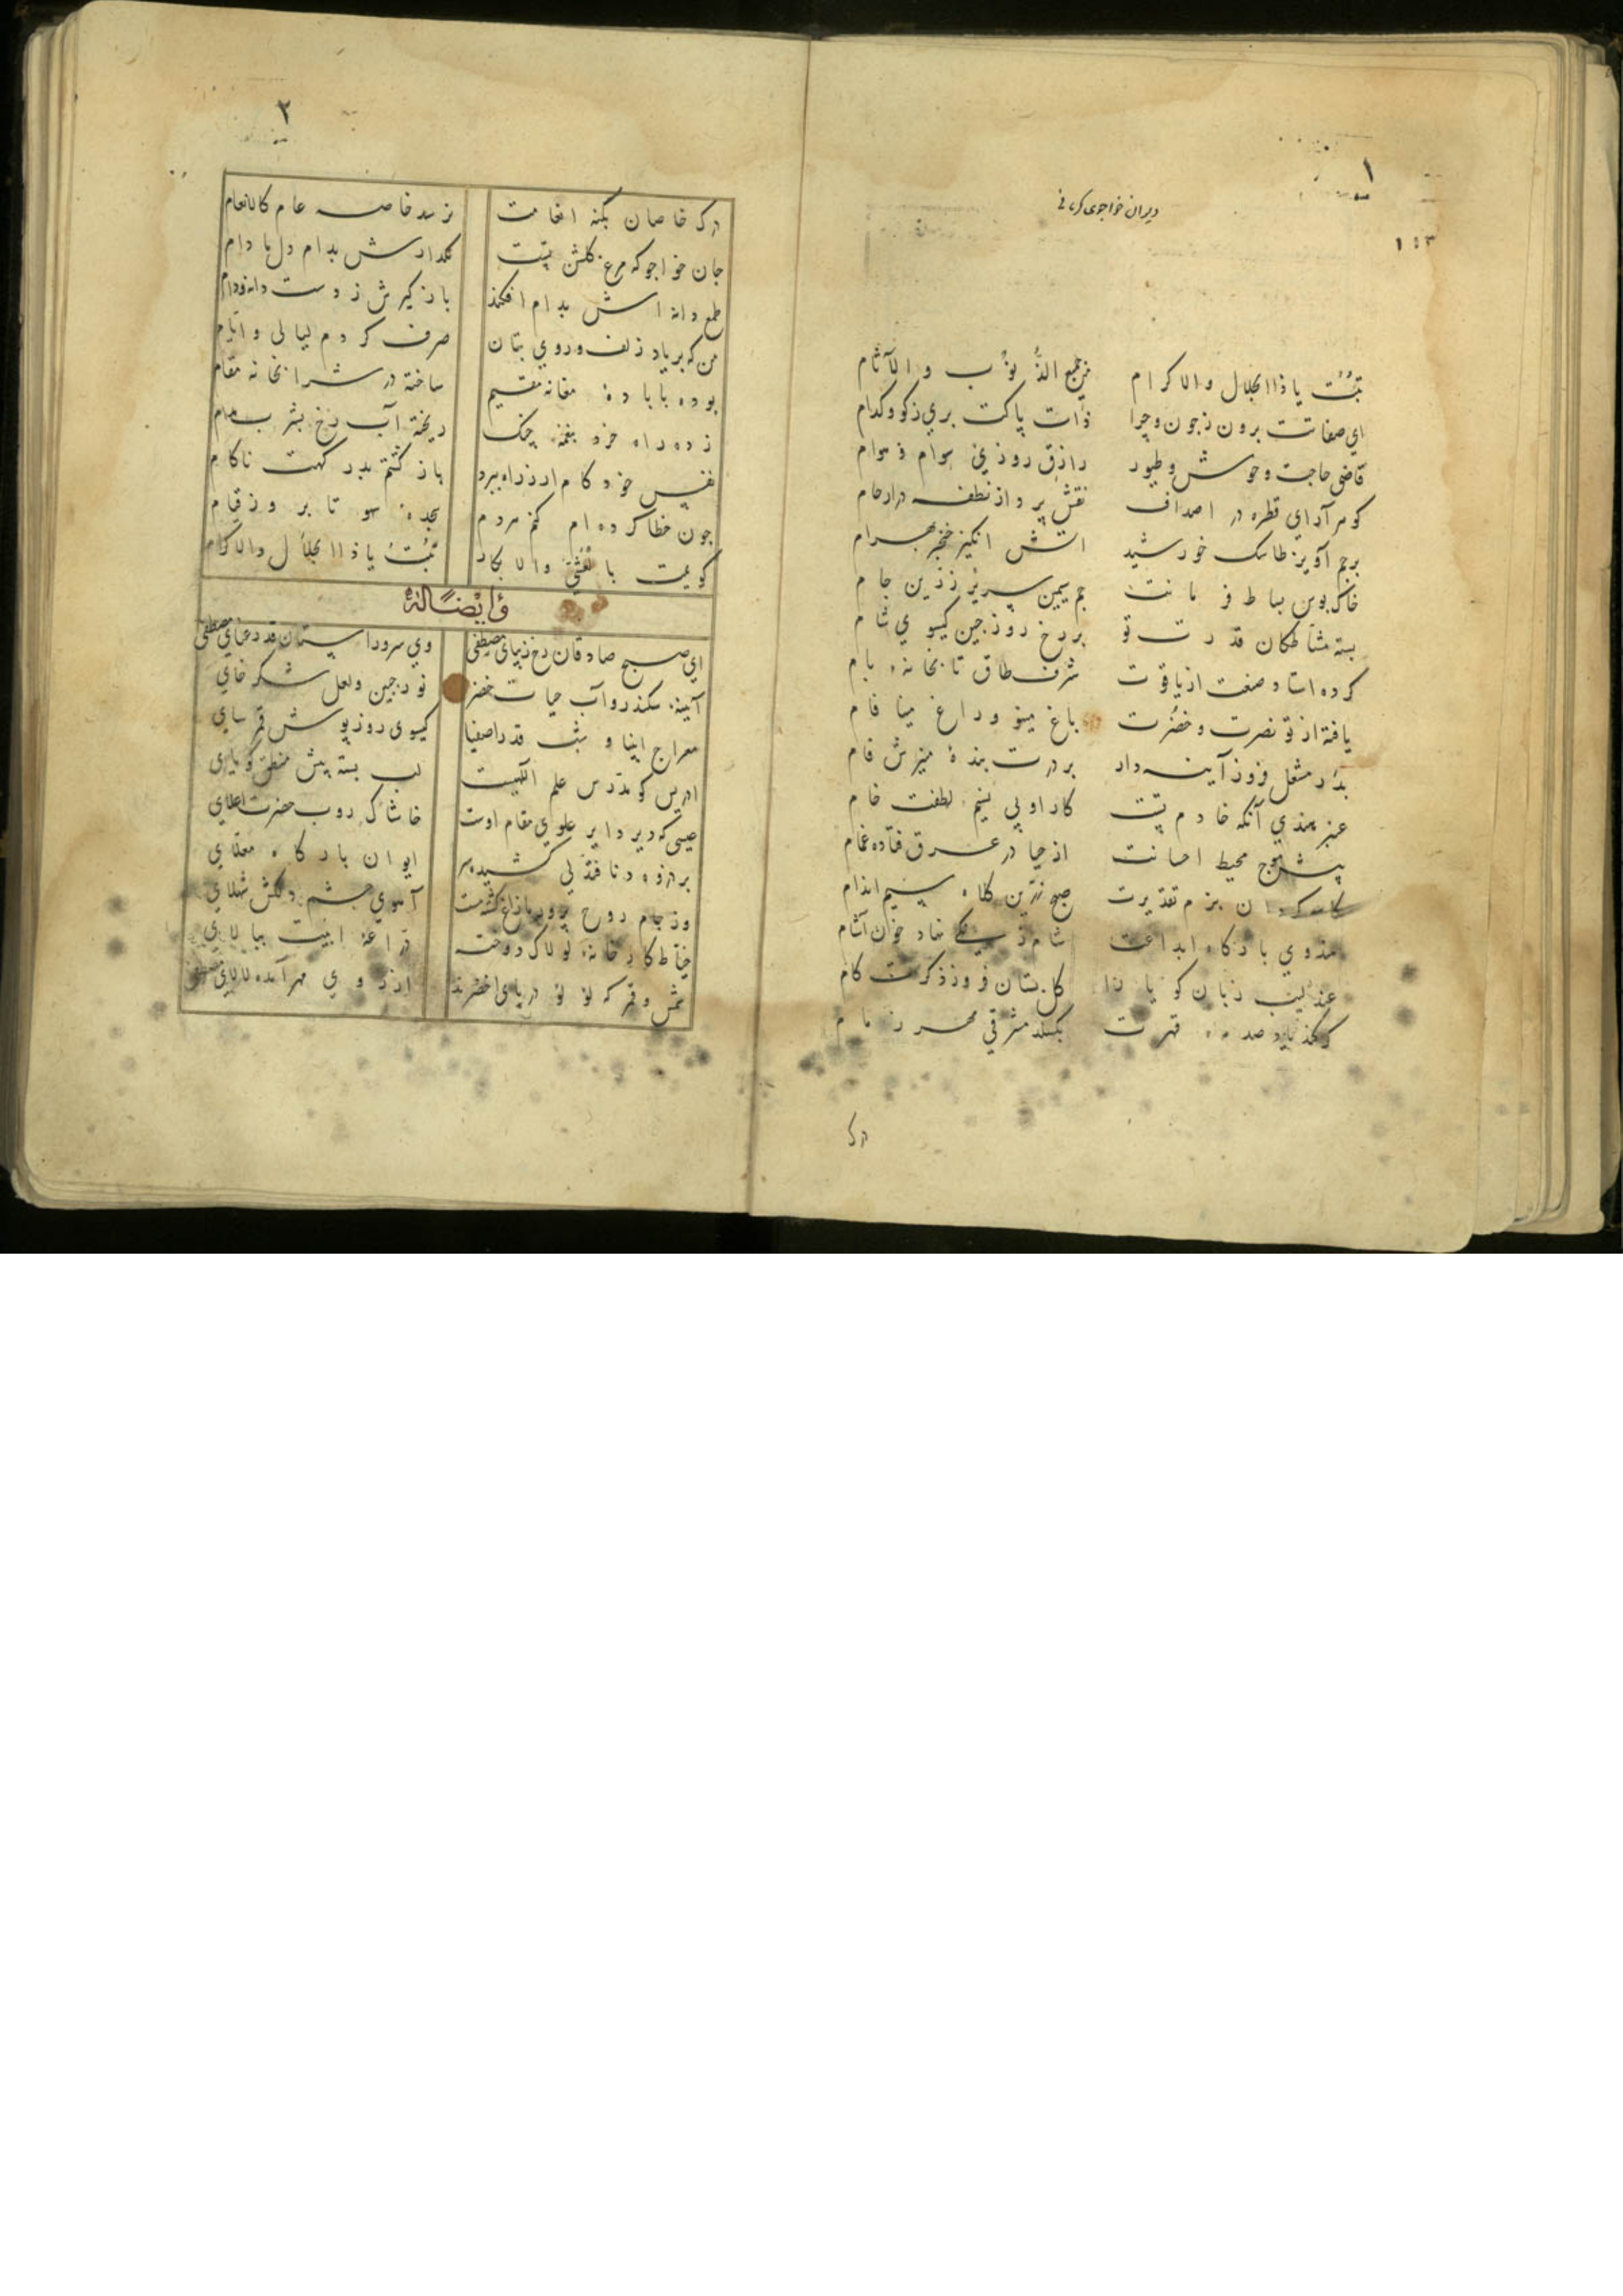 ۱
دیوان خواجوی کرمانی
۱۵۳
تبتُ یا ذا الجلال والاکرام من جمیع الذُّنوُب و الآثام
ای صفاتت برون ز چون و چرا ذات پاکت بری ز کو و کدام
قاضی حاجت وحوش و طیور رازق روزی سوام و هوام
کوهر آرای قطره در اصداف نقش پرداز نطفه در ارحام
پرچم آویز طاسک خورشید اتش انگیز خنجر بهرام
خاک بوس بساط فرمانت جم سیمین سریر زرین جام
بسته مشاطکان قدرت تو بر رخ روز چین کیسوی شام
کرده استاد صنعت از یاقوت شرف طاق تابخانه بام
یافته از تو نضرت و خضرت باغ مینو و راغ مینا فام
بدر مشعل فروز آینه دار بر درت بنده منیرش نام
عنبر هندی آنکه خادم تست کار او بی نسیم لطفت خام
پیش موج محیط احسانت از حیا در عرق فتاده غمام
بزم تقدیرت صبح زرین کلاه سیم اندام
بارکاه ابداعت شام زنگی نهاد خون آشام
عندلیب زبان کویا را کل بستان فروز ذکرت کام
کر کند یاد صدمه قهرت بکسلد مشرقی مهر زمام
درک
۲
درک خاصان بکنه انعامت نرسد خاصه عام کالانعام
جان خواجو که مرغ کلشن تست مکذارش بدام دل مادام
طمع دانه اش بدام افکند باز کیرش ز دست دانه و دام
من که بر یاد زلف و روی بتان صرف کردم لیالی و ایام
بوده با باده مغانه مقیم ساخته در شرابخانه مقام
زده راه خرد بنغمه چنک ریخته آب رخ بشرب مدام
نفس خودکام ار ز راه ببرد باز کشتم بدر کهت ناکام
چون خطا کرده ام کنم هر دم سجده سهو تا بروز قیام
کویمت بالعشی والابکار تبتُ یا ذا الجلال والاکرام
و ایضاً له
ای صبح صادقان رخ زیبای مصطفی وی سرو راستان قد رعنای مصطفی
آیینه سکندر و آب حیات خضر نور جبین و لعل شکر خای
معراج انبیا و شب قدر اصفیا کیسوی روز پوش قمر سای
ادریس کو مدرس علم الهیست لب بسته پیش منطق کویای
عیسی که دیر دایر علوی مقام اوست خاشاک روب حضرت اعلای
بر ذروه دنا فتدلی کشیده سر ایوان بارکاه معلای
وز جام روح پرور مازاغ کشته مست آهوی چشم دلکش شهلای
خیاط کارخانه لولاک دوخته دراعه ابیت ببالای
شمس و قمر که لؤلؤ دریای اخضرند از روی مهر آمده لالای مصطفی